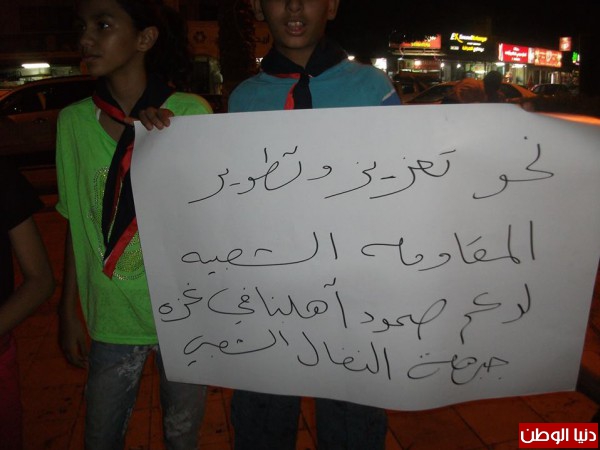 نحو تعزيز وتطوير
المقاومه الشعبيه
لدعم صمود أهلنا في غزه
جبهة النضال الشعبي
دنيا الوطن